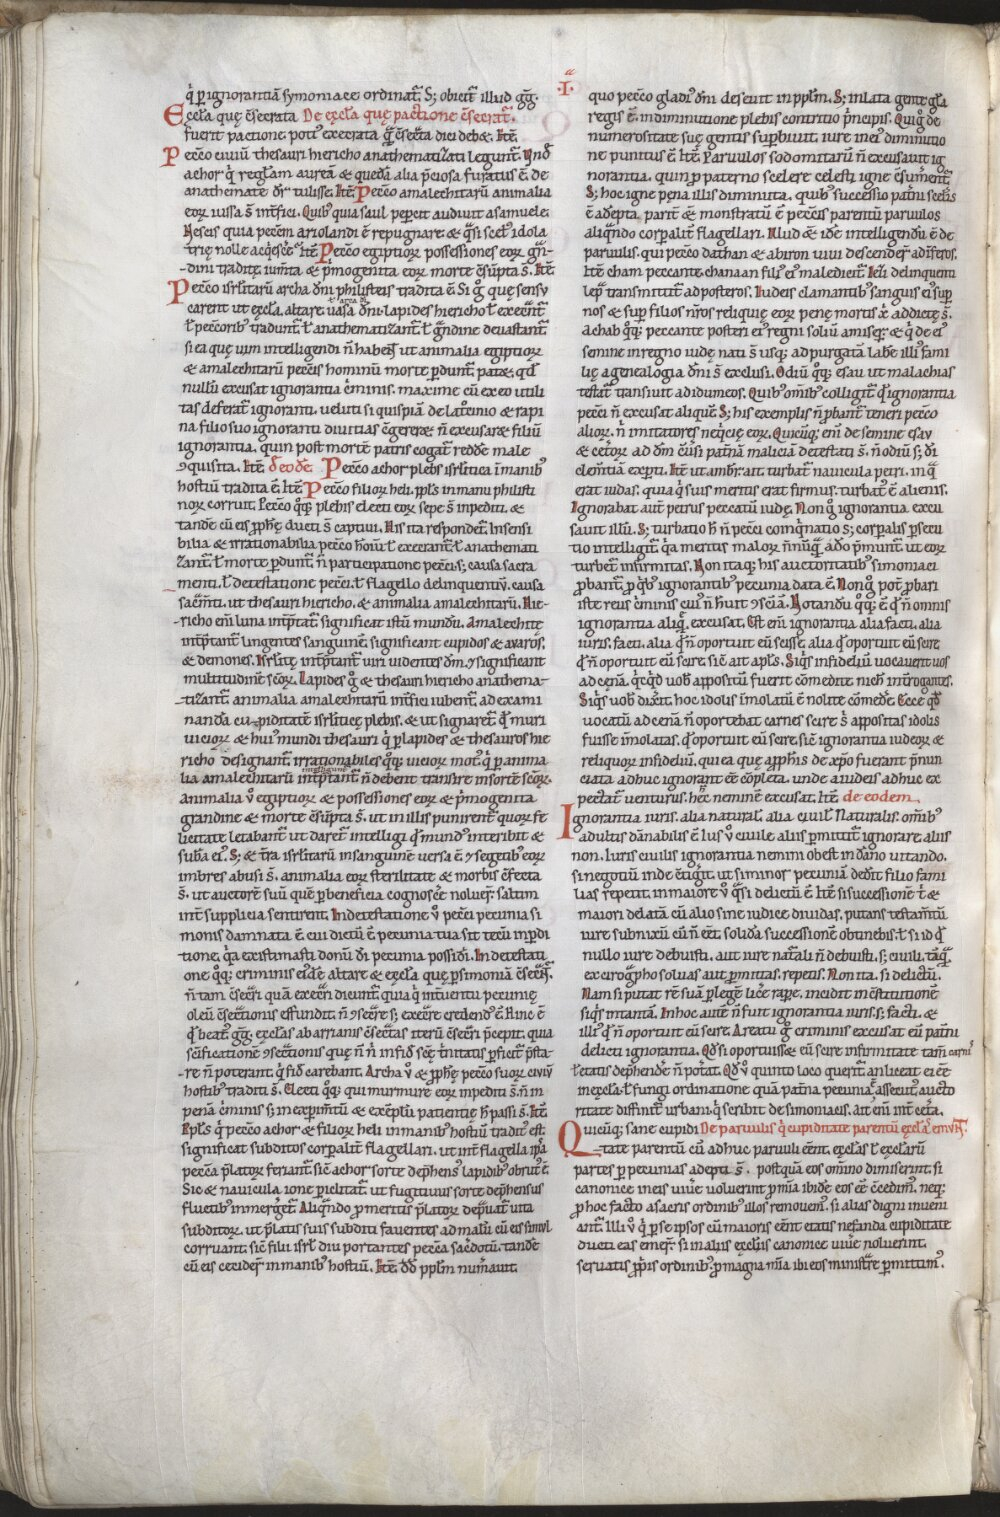 .I.
q̇ p̱ ignorantiā symoniace ordinat̄. S; obicit̄ illud gḡ.
Eccl̄a quę c̄secrata De ęccl̄a quę pactione c̄secrat̄.
fuerit pactione. poti᾽ execrata q̄ c̄secrata dici debet. Itē.
Peccō ciuiū thesauri hiericho anathematizati legunt̄. Vnd̄
achor q̇ regłam aureā & quedā alia p̄ciosa furatus ē. de
anathemate dr̄ tulisse. Itē. Peccō amalechitarū animalia
eoꝝ iussa s̄ int̄fici. Quib᾽ quia saul peꝑcit audiuit a samuele.
Nescis quia peccm̄ ariolandi ē repugnare & q̄si scel᾽ idola
trię nolle acq̇escere. Itē. Peccō egiptioꝝ possessiones eoꝝ grā-
dini traditę. iumta & p̄mogenita eoꝝ morte c̄sūpta s̄. Itē.
Peccō isrl̄itarū archa dn̄i philisteis tradita ē. Si g̊ quę sensu
carent ut ęccl̄a. altare. uasa dn̄i. lapides hiericho ł execrent̄
ł peccorib᾽ tradunt̄. ł anathematizant̄. ł grandine deuastant̄
si ea quę uim intelligendi n̄ habent ut animalia egiptioꝝ
& amalechitarū peccis hominū morte ꝑdunt̄. patet. qd̄
nullū excusat ignorantia c̄minis. maxime cū ex eo utili
tas deferat̄ ignoranti. ueluti si quispiā de latrocinio & rapi
na filio suo ignoranti diuitias c̄gereret. n̄ excusaret filiū
ignorantia. quin post mortē patris cogat̄ reddere male
ꝯquisita. Itē. de eodē. Peccō achor plebs isrl̄itica in manib᾽
hostiū tradita ē. Itē. Peccō filioꝝ heli. ppl̄s in manu philisti
noꝝ corruit. Peccō q̊q; plebis electi eoꝝ sepe s̄ inpediti. &
tande cū eis ꝓphę ducti s̄ captiui. His ita respondet̄. Insensi
bilia & irrationabilia peccō hoīū ł execrant̄. ł anathemati
zant̄. ł morte ꝑdunt̄. n̄ participatione peccis; causa sacra
menti. ł detestatione peccī. ł flagello delinquentiū. causa
sacm̄ti. ut thesauri hiericho. & animalia amalechitarū. Hie-
richo eni luna int̄ptat̄. significat istū mundū. Amalechitę
int̄ptant̄ lingentes sanguinē. significant cupidos & auaros.
& demones. Isrl̄itę int̄ptant̄ uiri uidentes dm̄. ⁊ significant
multitudinē sc̄oꝝ. Lapides g̊ & thesauri hiericho anathema-
tizant̄. animalia amalechitarū int̄fici iubent̄. ad exami
nandā cupiditatē isrl̄iticę plebis. & ut signaret̄ q̊ muri
uicioꝝ & hui᾽ mundi thesauri q̇ p̱ lapides & thesauros hie
richo designant̄. irrationabiles q̊q; uicioꝝ mot᾽ q̇ p̱ anima
lia amalechitarū int̄ptant̄ n̄ debent transire in sortē sc̄oꝝ.
animalia v̊ egiptioꝝ & possessiones eoꝝ & p̄mogenita
grandine & morte c̄sūpta s̄. ut in illis punirent̄ quoꝝ fe
licitate letabant̄. ut daret̄ intelligi q̊ mund᾽ interibit &
subā ei᾽. S; & t̄ra isrl̄itarū in sanguinē versa ē. ⁊ segetib᾽ eoꝝ
imbres abusi s̄. animalia eoꝝ sterilitate & morbis c̄fecta
s̄. ut auctorē suū quē p̱ beneficia cognoscere noluer̄. saltim
int̄ supplicia sentirent. In detestatione v̊ pecci pecunia si
monis damnata ē. cui dictū ē. pecunia tua sit tecū in ꝑdi
tione. q̇a existimasti donū dī pecunia possideri. In detestati
one q̊q; criminis ei᾽dē altare & ęccl̄a quę p̱ simoniā c̄secr̄.
n̄ tam c̄secrari quā execrari dicunt̄. quia q̇ int̄uentu pecunię
oleū c̄secrationis effundit. n̄ ꝯsecrare s; execrare credend᾽ ē. Hinc ē
q̊ beat᾽ gḡ. ęccl̄as ab arrianis c̄secratas iterū c̄secrari p̄cepit. quia
sc̄ificatione ꝯsecrationis quę n̄ n̄ in fid̄ sc̄ę t̄nitatis ꝑficit̄. p̄sta-
re n̄ poterant. q̇ fid̄ carebant. Archa v̊ & ꝓphę peccō suoꝝ ciuiū
hostib᾽ traditi s̄. Electi q̊q; qui murmure eoꝝ inpediti s̄. n̄ in
penā c̄minis s; in expim̄tū & exeplū patientię h̄ passi s̄. Itē.
Ppl̄s q̇ peccō achor & filioꝝ heli in manib᾽ hostiū tradit᾽ est.
significat subditos corꝑalit̄ flagellari. ut int̄ flagella ip̄a
peccā p̄latoꝝ feriant̄. sic̄ achor sorte dephens᾽ lapidib᾽ obrut᾽ ē.
Sic & nauicula ionę ꝑielitat̄. ut fugitiuus sorte dephensus
fluctib᾽ inmerget̄. Aliqn̄do p̱ meritis p̄latoꝝ depuat̄ uita
subditoꝝ. ut p̄latis suis subditi fauentes ad malū cū eis simul
corruant. sic̄ filii isrl̄ diu portantes peccā sacdotū. tandē
cū eis cecider̄ in manib᾽ hostiū. Itē. Dd̄ ppl̄m num̄auit.
quo peccō gladi᾽ dn̄i deseuit in ppl̄m. S; in lata gente gl̄a
regis ē. in diminutione plebis contritio p̄ncipis. Qui g̊ de
numerositate suę gentis suꝑbiuit. iure in ei᾽ diminutio
ne punitus ē. Itē. Paruulos sodomitarū n̄ excusauit ig
norantia. quin p̱ paterno scelere celesti igne c̄sumerent̄.
S; hoc igne pena illis diminuta. quib᾽ successio pat̄ni sceleris
ē adepta. parit̄ & monstratū ē p̱ peccis parentū paruulos
aliqn̄do corꝑalit̄ flagellari. Illud & idē intelligendū ē de
paruulis. qui peccō dathan & abiron uiui descender̄ ad īferos.
Itē. cham peccante. chanaan fili᾽ ei᾽ maledicit̄. Itē. delinquenti
lep̄ transmittit̄ ad posteros. Iudeis clamantib᾽ sanguis ei᾽ suꝑ
nos & suꝑ filios nr̄os reliquię eoꝝ penę mortis x̄ addictę s̄.
achab q̊q; peccante posteri ei᾽ regni soliū amiser̄. & q̇ de ei᾽
semine in regno iudę nati s̄ usq; ad purgatā labē illi᾽ fami
lię a genealogia dn̄i s̄ exclusi. Odiū q̊q; esau ut malachias
testat̄ transiuit ad idumeos. Quib᾽ om̄ib᾽ colligit̄ q̊ ignorantia
pecci n̄ excusat aliquē. S; his exemplis n̄ pbant̄ teneri peccō
alioꝝ. n̄ imitatores neq̇cię eoꝝ. Quicūq; eni de semine esau
& cet̄oꝝ ad dm̄ c̄uersi pat̄nā maliciā detestati s̄. n̄ odiū s; dī
clem̄tiā experti. Itē. ut ambr̄. ait. turbat̄ nauicula petri. in q̄
erat iudas. quia q̇ suis meritis erat firmus. turbat̄ ē alienis.
Ignorabat aut̄ petrus peccatū iudę. Non g̊ ignorantia excu
sauit illū. S; turbatio h̄ n̄ pecci coinq̇natio s; corꝑalis ꝑsecu
tio intelligit̄. q̇a meritis maloꝝ n̄nūq̄ adeo p̄munt̄. ut eoꝝ
turbet̄ infirmitas. Non itaq; his auctoritatib᾽ simoniaci
ꝓbant̄. p̱ q̇b᾽ ignorantib᾽ pecunia data ē. Non g̊ pot̄ ꝓbari
iste reus c̄minis cui᾽ n̄ h̄uit ꝯsciētiā. Notandū q̊q; ē q̊ n̄ omnis
ignorantia aliq̄. excusat. Est eni ignorantia alia facti. alia
iuris. facti. alia q̊ n̄ oportuit eū scisse. alia q̊ oportuit eū scire.
q̊ n̄ oportuit eū scire. sic̄ ait apl̄s. Siq̇s infideliū uocauerit uos
ad cenā. q̇cq̇d uob̄ appositū fuerit comedite nich̄ int̄rogantes.
Siq̇s uob̄ dixerit. hoc idolis īmolatū ē. nolite comedere. Ecce q̊d
uocatū ad cenā n̄ oportebat carnes scire s̄ appositas idolis
fuisse īmolatas. q̊ oportuit eū scire. sic̄ ignorantia iudeoꝝ &
reliquoꝝ infideliū. qui ea quę a ꝓphis de xp̄o fuerant p̄nun
ciata adhuc ignorant eē cōpleta. unde a iudeis adhuc ex
pectat̄ uenturus. hęc neminē excusat. Itē. de eodem
Ignorantia iuris. alia natural᾽. alia ciuil᾽. Naturalis. om̄ib᾽
adultis dānabilis ē. Ius v̊ ciuile aliis ꝑmittit̄ ignorare. aliis
non. Iuris ciuilis ignorantia nemini obest in dāno uitando.
si negotiū inde c̄tigit̄. ut si minor pecuniā dederit filio fami
lias repetit. in maiore v̊ q̄si delictū ē. Itē. si successionē t &
maiori delatā cū alio sine iudice diuidas. putans testam̄tū
iure subnixū cū n̄ eet̄. solidā successionē obtinebis. ł si id q̊
nullo iure debuisti. aut iure nat̄ali n̄ debuisti. s; ciuili. taq̄
ex cirogpho soluas aut ꝑmittas. repetis. Non ita. si delictū.
Nam si putat rē suā p̱ legē licere rapere. incidit in c̄stitutionē
siq̇s in tantā. In hoc autē n̄ fuit ignorantia iuris. s; facti. &
illi᾽ q̊ n̄ oportuit eū scire. A reatu g̊ criminis excusat eū pat̄ni
delicti ignorantia. Qd̄ si oportuisset eū scire infirmitate tam̄ carnis
ł etatis dephendere n̄ potat̄. Qd̄ v̊ quinto loco querit̄. an liceat ei eē
in ęccl̄a. ł fungi ordinatione quā pat̄na pecunia asseruit. aucto
ritate diffinit̄ urbani. q̇ scribit de simoniacis. ait eni int̄ cet̄a.
Quicūq; sane cupidi De paruulis q̇ cupiditate parentū ęccl̄as emunt̄.
tate parentū cū adhuc paruuli eent. ęccl̄as ł ęccl̄arū
partes p̱ pecunias adepti s̄. postquā eos om̄ino dimiserint. si
canonice in eis uiuere voluerint p̱ mīa ibidē eos eē c̄cedim᾽. neq;
p̱ hoc facto a sacris ordinib᾽ illos remouem᾽. si alias digni inueni
ant̄. Illi v̊ q̇ p̱ se ipsos cū maioris eent etatis nefanda cupiditate
ducti eas emer̄. si in aliis ęccl̄iis canonice uiuere uoluerint.
seruatis ꝓpriis ordinib᾽ p̱ magna mīa ibi eos ministrare ꝑmittim᾽.